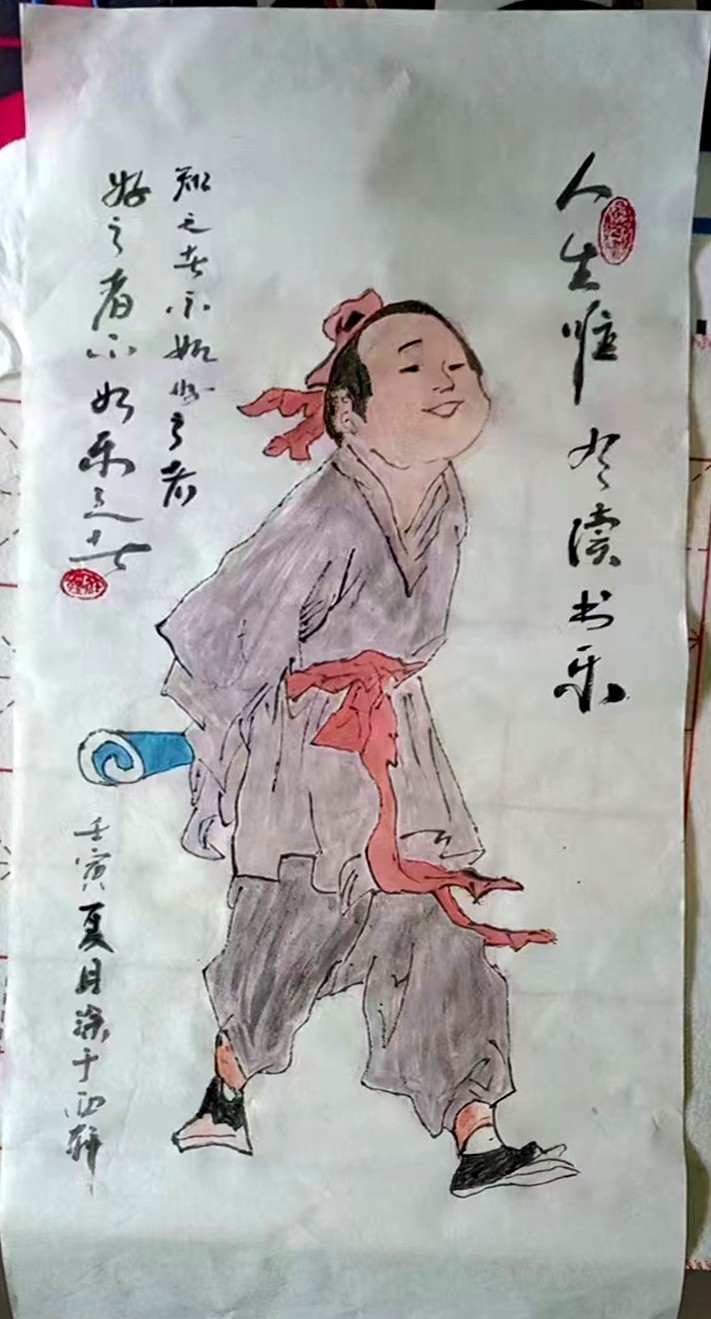 人生惟有读书乐
知之者不如好之者
好之者不如乐之者
壬寅夏月涂于西轩